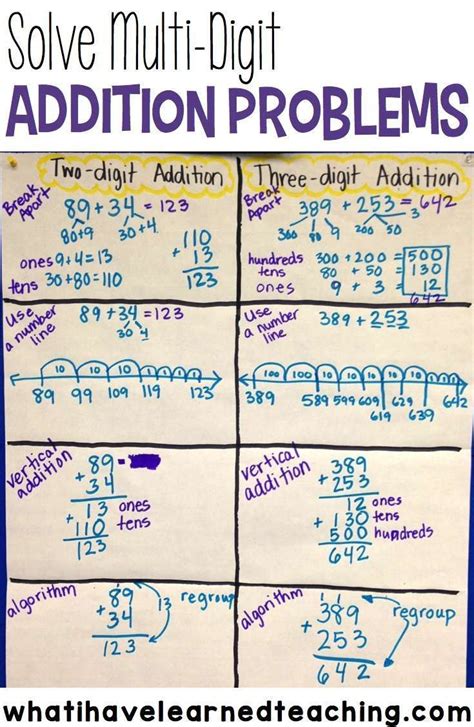 Solve Multi-Digit
ADDITION PROBLEMS
Two-digit Addition
Break Apart
89 + 34 = 123
80+9 30+4
ones 9+4=13
tens 30+80=110
110
+ 13
123
Three-digit Addition
Break Apart
389 + 253 = 642
300 80 9 200 50 3
hundreds 300 + 200 = 500
tens 80 + 50 = 130
ones 9 + 3 = 12
642
Use a number line
89+34=123
30 4
10 10 10 1 1 1 1
89 99 109 119 123
Use a number line
389 + 253
100 100 10 10 10 10 10 1 1 1
389 589 599 609 619 629 639 642
vertical addition
89
+ 34
13 ones
+ 110 tens
123
vertical addition
389
+ 253
12 ones
+ 130 tens
500 hundreds
642
algorithm
1
89
+ 34
123
13 regroup
algorithm
1 1
389
+ 253
642
regroup
whatihavelearnedteaching.com